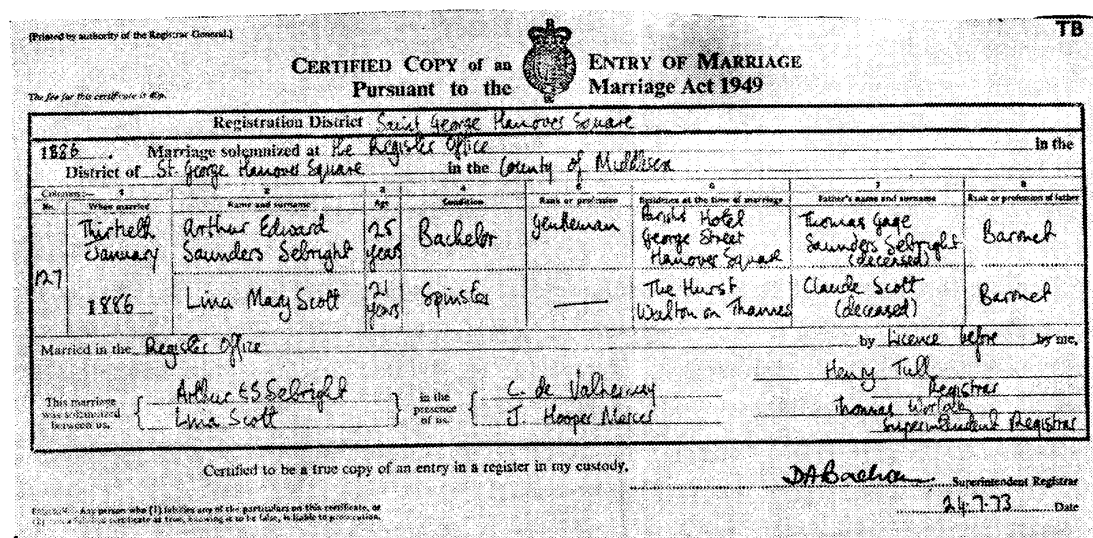 [Printed by authority of the Registrar General.]
TB
CERTIFIED COPY of an ENTRY OF MARRIAGE
Pursuant to the Marriage Act 1949
The fee for this certificate is 40p.
Registration District Saint George Hanover Square
1886. Marriage solemnized at the Register Office in the
District of St. George Hanover Square in the County of Middlesex
Columns:— 1 2 3 4 5 6 7 8
No. When married Name and surname Age Condition Rank or profession Residence at the time of marriage Father's name and surname Rank or profession of father
127
Thirtieth January 1886
Arthur Edward Saunders Sebright
25 years
Bachelor
Gentleman
Hotel George Street Hanover Square
Thomas Gage Saunders Sebright (deceased)
Baronet
Lina Mary Scott
21 years
Spinster
———
The Hurst Walton on Thames
Claude Scott (deceased)
Baronet
Married in the Register Office by Licence before by me,
This marriage was solemnized between us,
Arthur E S Sebright
Lina Scott
in the presence of us,
C. de
J. Hooper
Henry Tull
Registrar
Thomas
Superintendent Registrar
Certified to be a true copy of an entry in a register in my custody.
Superintendent Registrar
24.7.73 Date
Any person who (1) falsifies any of the particulars on this certificate, or
(2) a falsified certificate as true, knowing it to be false, is liable to prosecution.